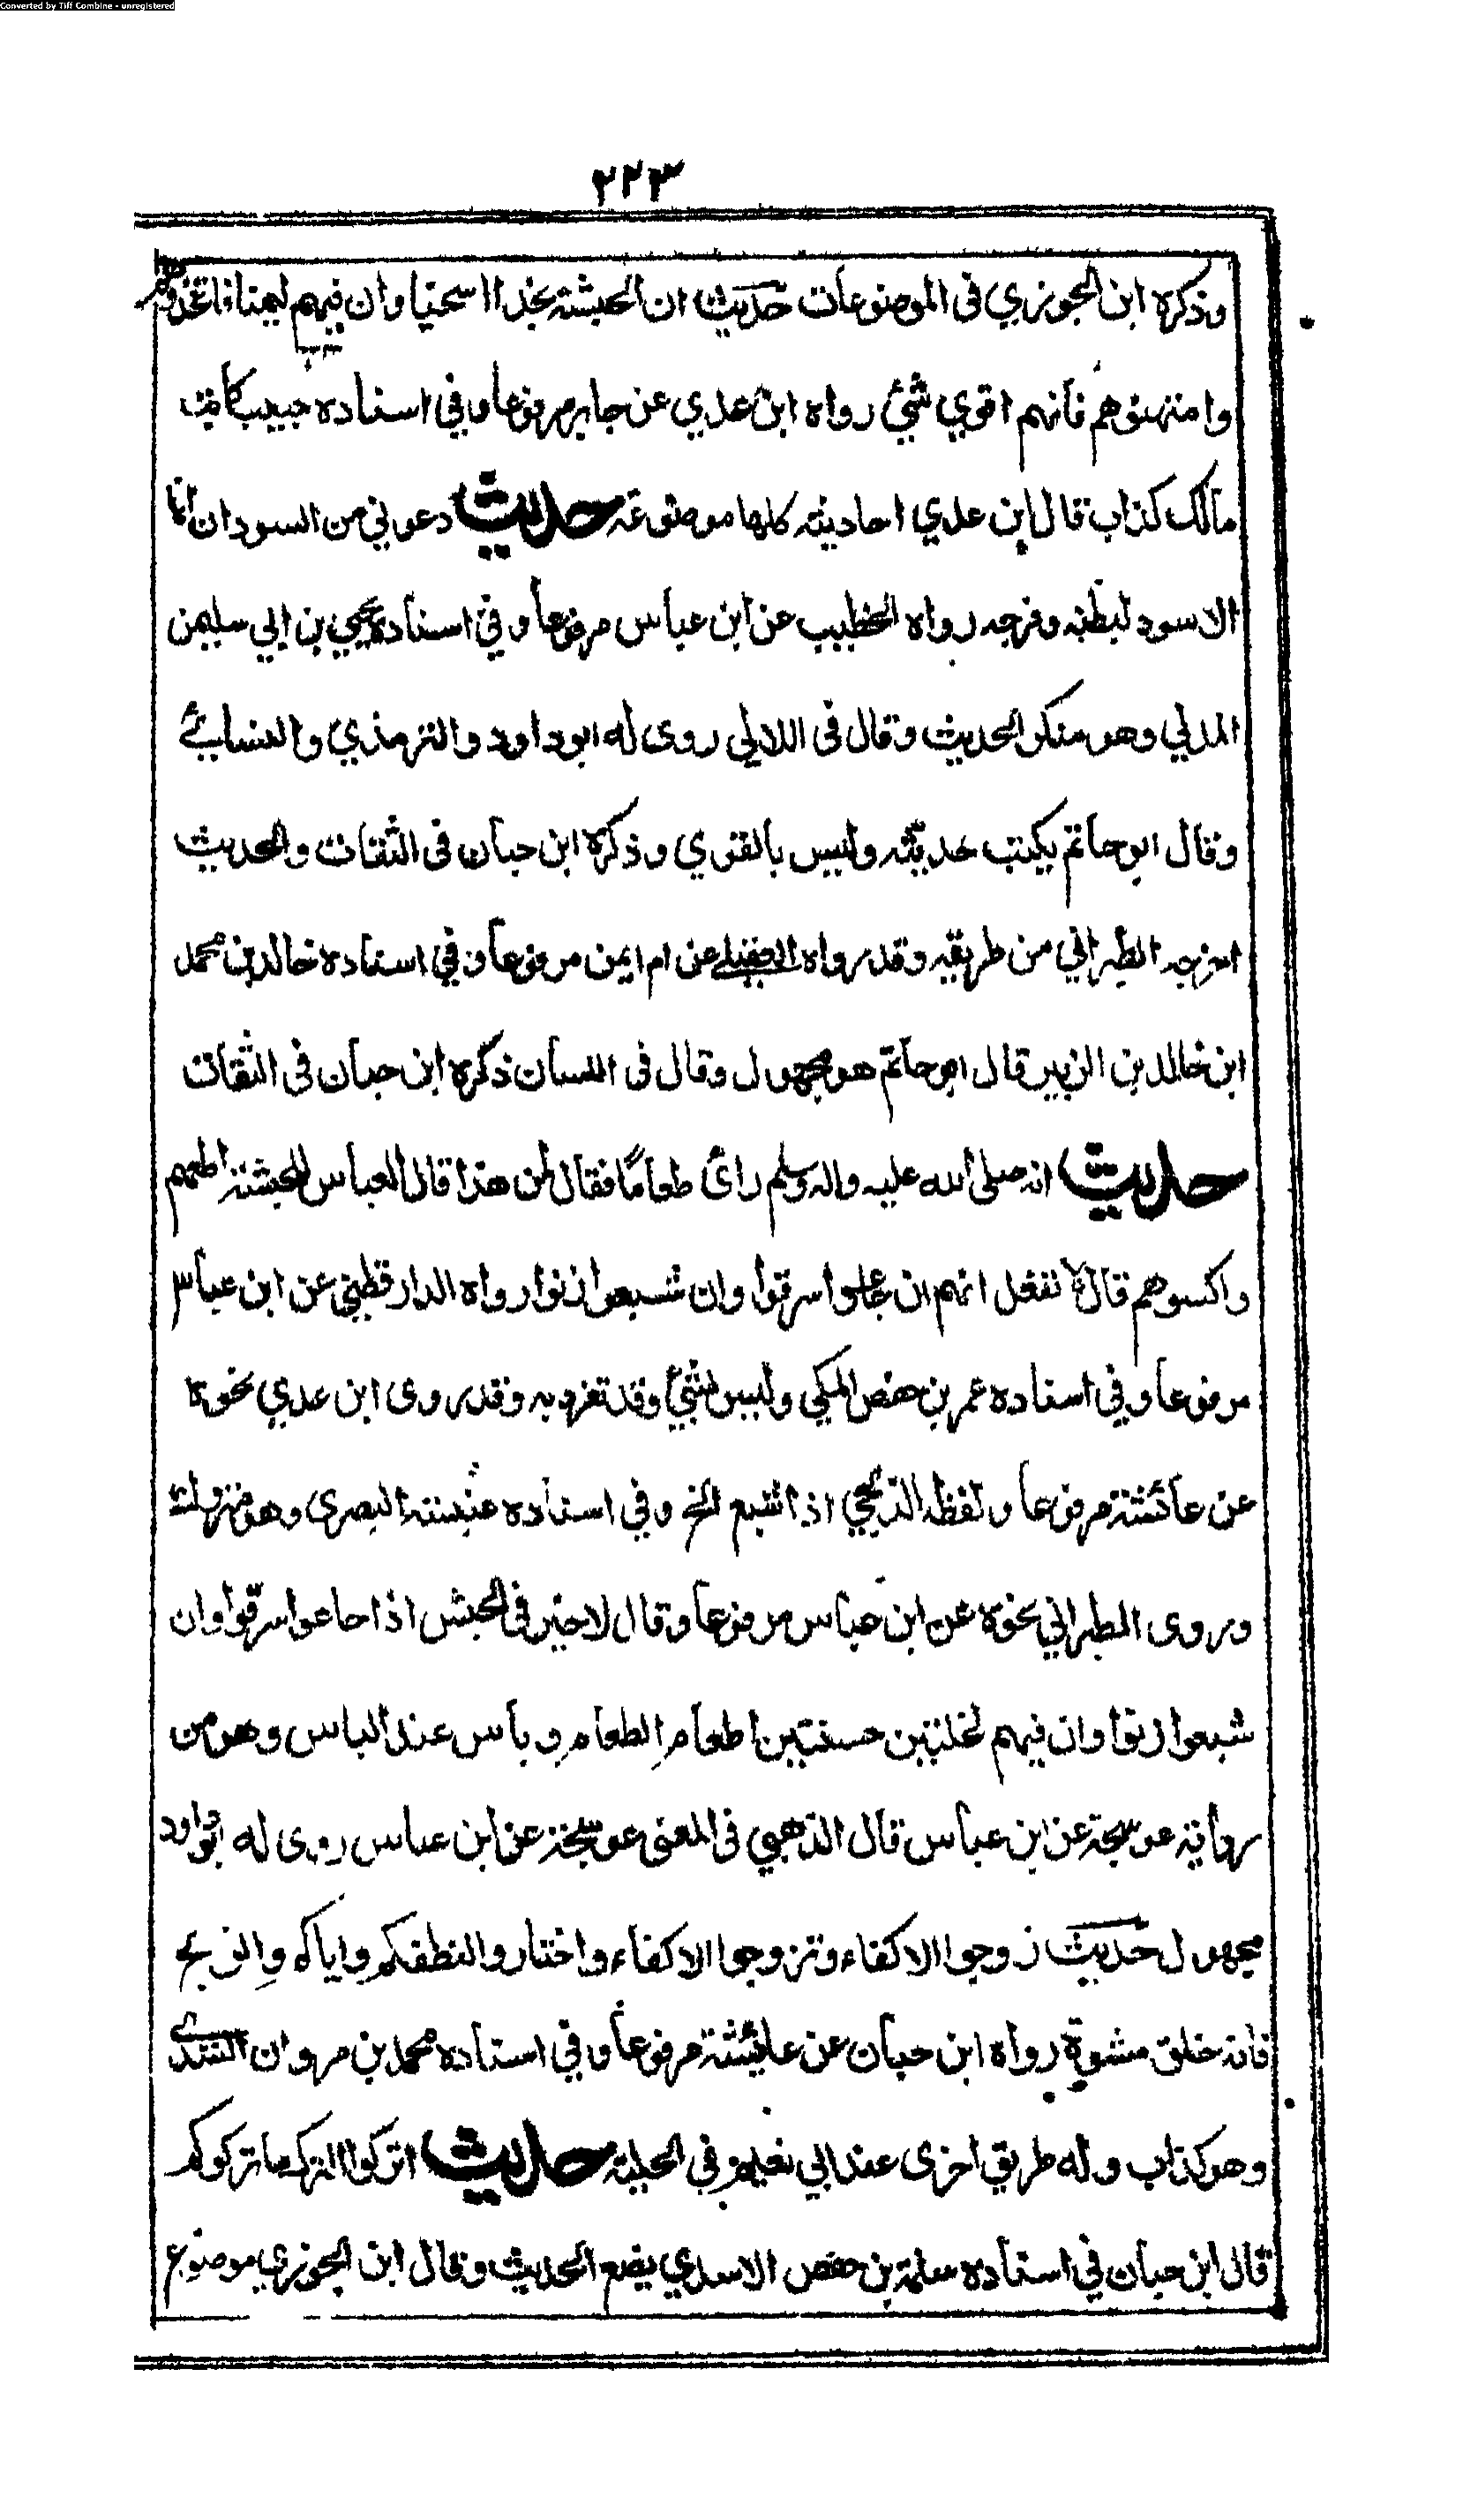 Converted by Tiff Combine - unregistered
٢٢٣
وذكره ابن الجوزي فى الموضوعات حديث ان الحبشة نجدا اسخيا وان فيهم ليمنا فاتخذوهم
وامتهنوهم فانهم اقوي شئ رواه ابن عدي عن جابر مرفوعا وفي اسناده حبيب كاتب
مالك كذاب قال ابن عدي احاديثه كلها موضوعة حديث دعوني من السودان انما
الاسود لبطنه وفرجه رواه الخطيب عن ابن عباس مرفوعا وفي اسناده يحيي بن ابي سليمن
المدني وهو منكر الحديث وقال فى اللالي روى له ابوداود والترمذي والنسائے
وقال ابو حاتم يكتب حديثه وليس بالقوي وذكره ابن حبان فى الثقات والحديث
اخرجه الطبراني من طريقه وقد رواه العقيلے عن ام ايمن مرفوعا وفي اسناده خالد بن محمد
ابن خالد بن الزبير قال ابو حاتم هو مجهول وقال فى اللسان ذكره ابن حبان فى الثقات
حديث انه صلى الله عليه واله وسلم رائ طعاما فقال لمن هذا قال العباس للحبشة اطعمهم
واكسوهم قال لا تفعل انهم ان جاعوا سرقوا وان شبعوا زنوا رواه الدارقطني عن ابن عباس
مرفوعا وفي اسناده عمر بن حفص المكي وليس بشئ وقد تفرد به وقد روى ابن عدي نحوه
عن عائشة مرفوعا ولفظه الزنجي اذا شبع الخ وفي اسناده عنبسة البصري وهو متروك
وروى الطبراني نحوه عن ابن عباس مرفوعا وقال لا خير فى الحبش اذا جاعوا سرقوا وان
شبعوا زنوا وان فيهم لخلتين حسنتين اطعام الطعام وباس عند الباس وهو من
رواية عوسجة عن ابن عباس قال الذهبي فى المغني عوسجة عن ابن عباس روى له ابوداود
مجهول حديث زوجوا الاكفاء وتزوجوا الاكفاء واختاروا لنطفكم واياكم والزنج
فانه خلق مشوه رواه ابن حبان عن عائشة مرفوعا وفي اسناده محمد بن مروان السدے
وهو كذاب وله طريق اخرى عند ابي نعيم في الحلية حديث اتركوا الترك ما تركوكم
قال ابن حبان في اسناده سلمة بن حفص الاسدي يضع الحديث وقال ابن الجوزي موضوع